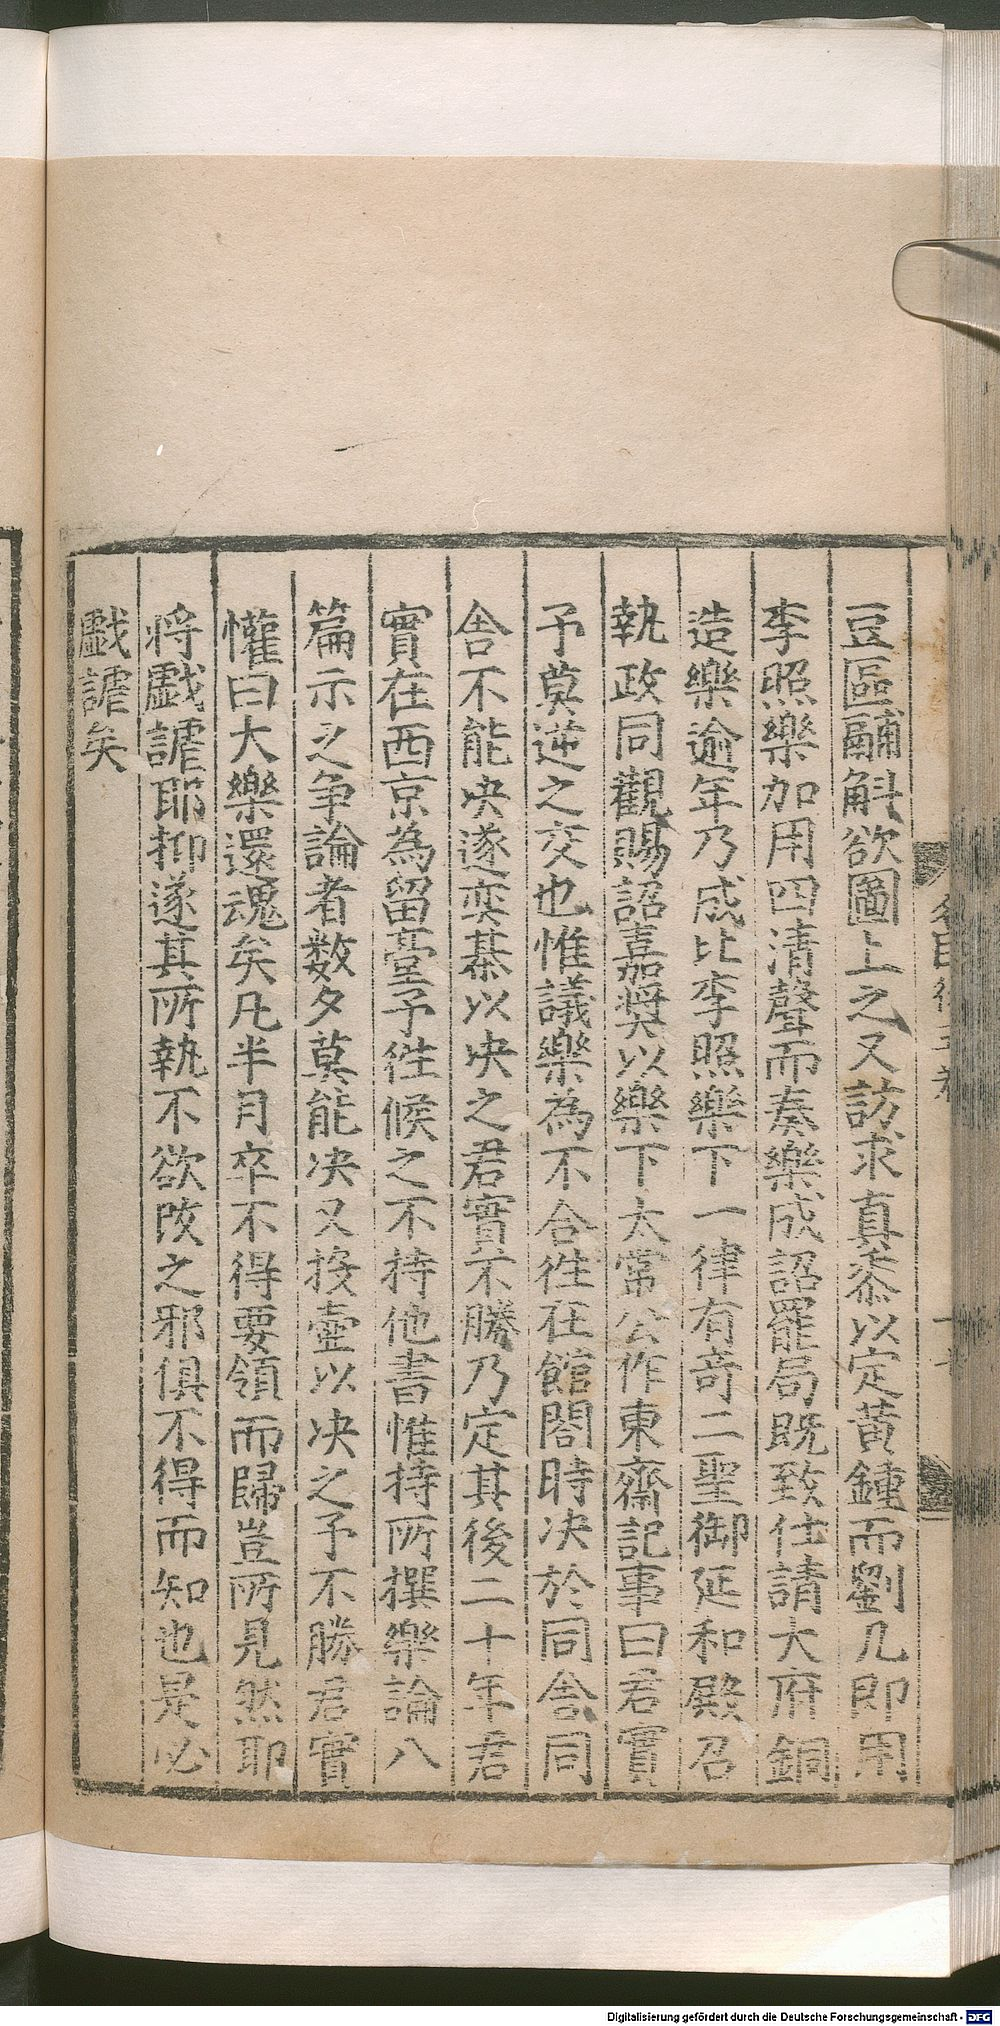 豆區鬴斛欲圖上之又訪求真黍以定黃鍾而劉几即用
李照樂加用四清聲而奏樂成詔罷局既致仕請大府銅
造樂逾年乃成比李照樂下一律有竒二聖御延和殿召
執政同觀賜詔嘉奨以樂下太常公作東齋記事曰君實
予莫逆之交也惟議樂為不合徃在館閣時决於同舎同
舎不能决遂奕棊以决之君實不勝乃定其後二十年君
實在西京為留臺予徃候之不持他書惟持所撰樂論八
篇示之争論者数夕莫能决又投壺以决之予不勝君實
懽曰大樂還魂矣凡半月卒不得要領而歸豈所見然耶
将戯謔耶抑遂其所執不欲改之邪俱不得而知也是必
戯謔矣
Digitalisierung gefördert durch die Deutsche Forschungsgemeinschaft - DFG